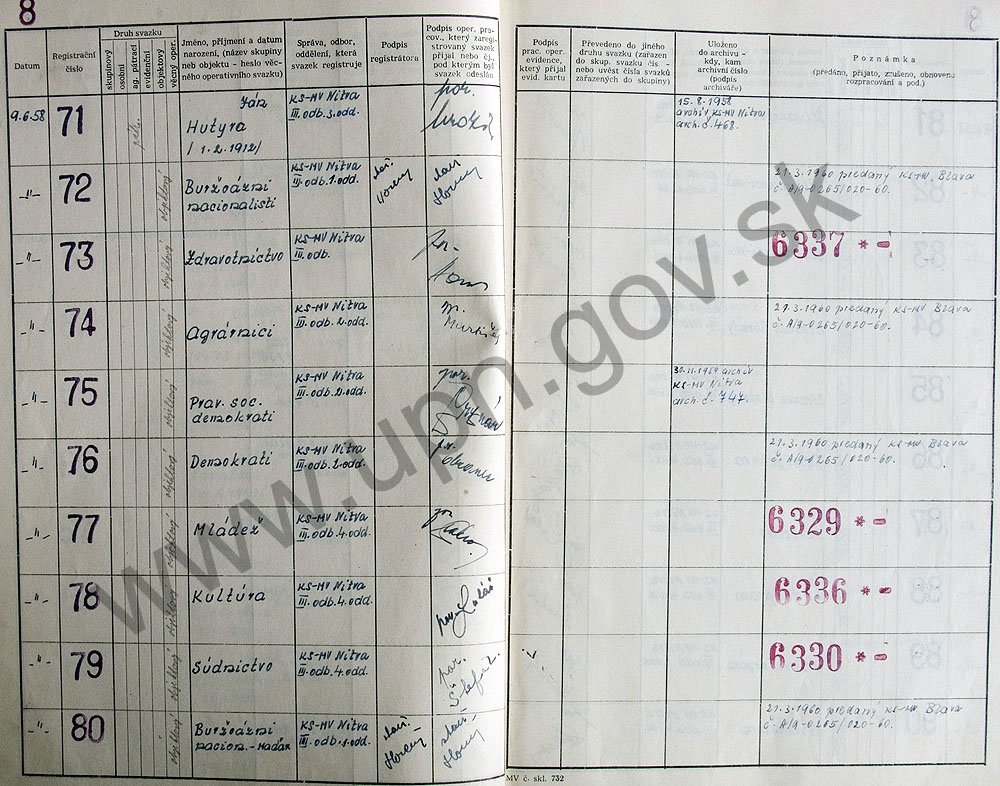 8
Datum
Registrační
číslo
Druh svazku
skupinový
osobní
ag. pátrací
evidenční
objektový
věcný oper.
Jméno, příjmení a datum
narození, (název skupiny
neb objektu - heslo věc-
ného operativního svazku)
Správa, odbor,
oddělení, která
svazek registruje
Podpis
registrátora
Podpis oper. pra-
cov., který zareg-
istrovaný svazek
přijal nebo čj.,
pod kterým byl
svazek odeslán
Podpis
prac. oper.
evidence,
který přijal
evid. kartu
Převedeno do jiného
druhu svazku (zařazen
do skup. svazku čís. -
nebo uvést čísla svazků
zařazených do skupiny)
Uloženo
do archivu -
kdy, kam
archivní číslo
(podpis
archiváře)
Poznámka
(předáno, přijato, zrušeno, obnoveno
rozpracování a pod.)
9.6.58 71
Ján
Hutyra
/1.2.1912/
KS-MV Nitra
III.odb.3.odd.
por.
15.8.1958
archív KS-MV Nitra
arch.č.468.
-"- 72 objektový
Buržoázni
nacionalisti
KS-MV Nitra
III.odb.1.odd.
21.3.1960 predaný KS-MV Blava
č. A/9-0265/020-60.
-"- 73 objektový
Zdravotníctvo
KS-MV Nitra
III.odb.
6337 * -
-"- 74 objektový
Agrárnici
KS-MV Nitra
III.odb.2.odd.
21.3.1960 predaný KS-MV Blava
č. A/9-0265/020-60.
-"- 75 objektový
Prav. soc.
demokrati
KS-MV Nitra
III.odb.2.odd.
por.
archív
KS-MV Nitra
arch.č.747.
-"- 76 objektový
Demokrati
KS-MV Nitra
III.odb.2.odd.
21.3.1960 predaný KS-MV Blava
č. A/9-0265/020-60.
-"- 77 objektový
Mládež
KS-MV Nitra
III.odb.4.odd.
6329 * -
-"- 78 objektový
Kultúra
KS-MV Nitra
III.odb.4.odd.
6336 * -
-"- 79 objektový
Súdnictvo
KS-MV Nitra
III.odb.4.odd.
por.
6330 * -
-"- 80 objektový
Buržoázni
nacion.-maďar
KS-MV Nitra
III.odb.1.odd.
21.3.1960 predaný KS-MV Blava
č. A/9-0265/020-60.
MV č. skl. 752
www.upn.gov.sk